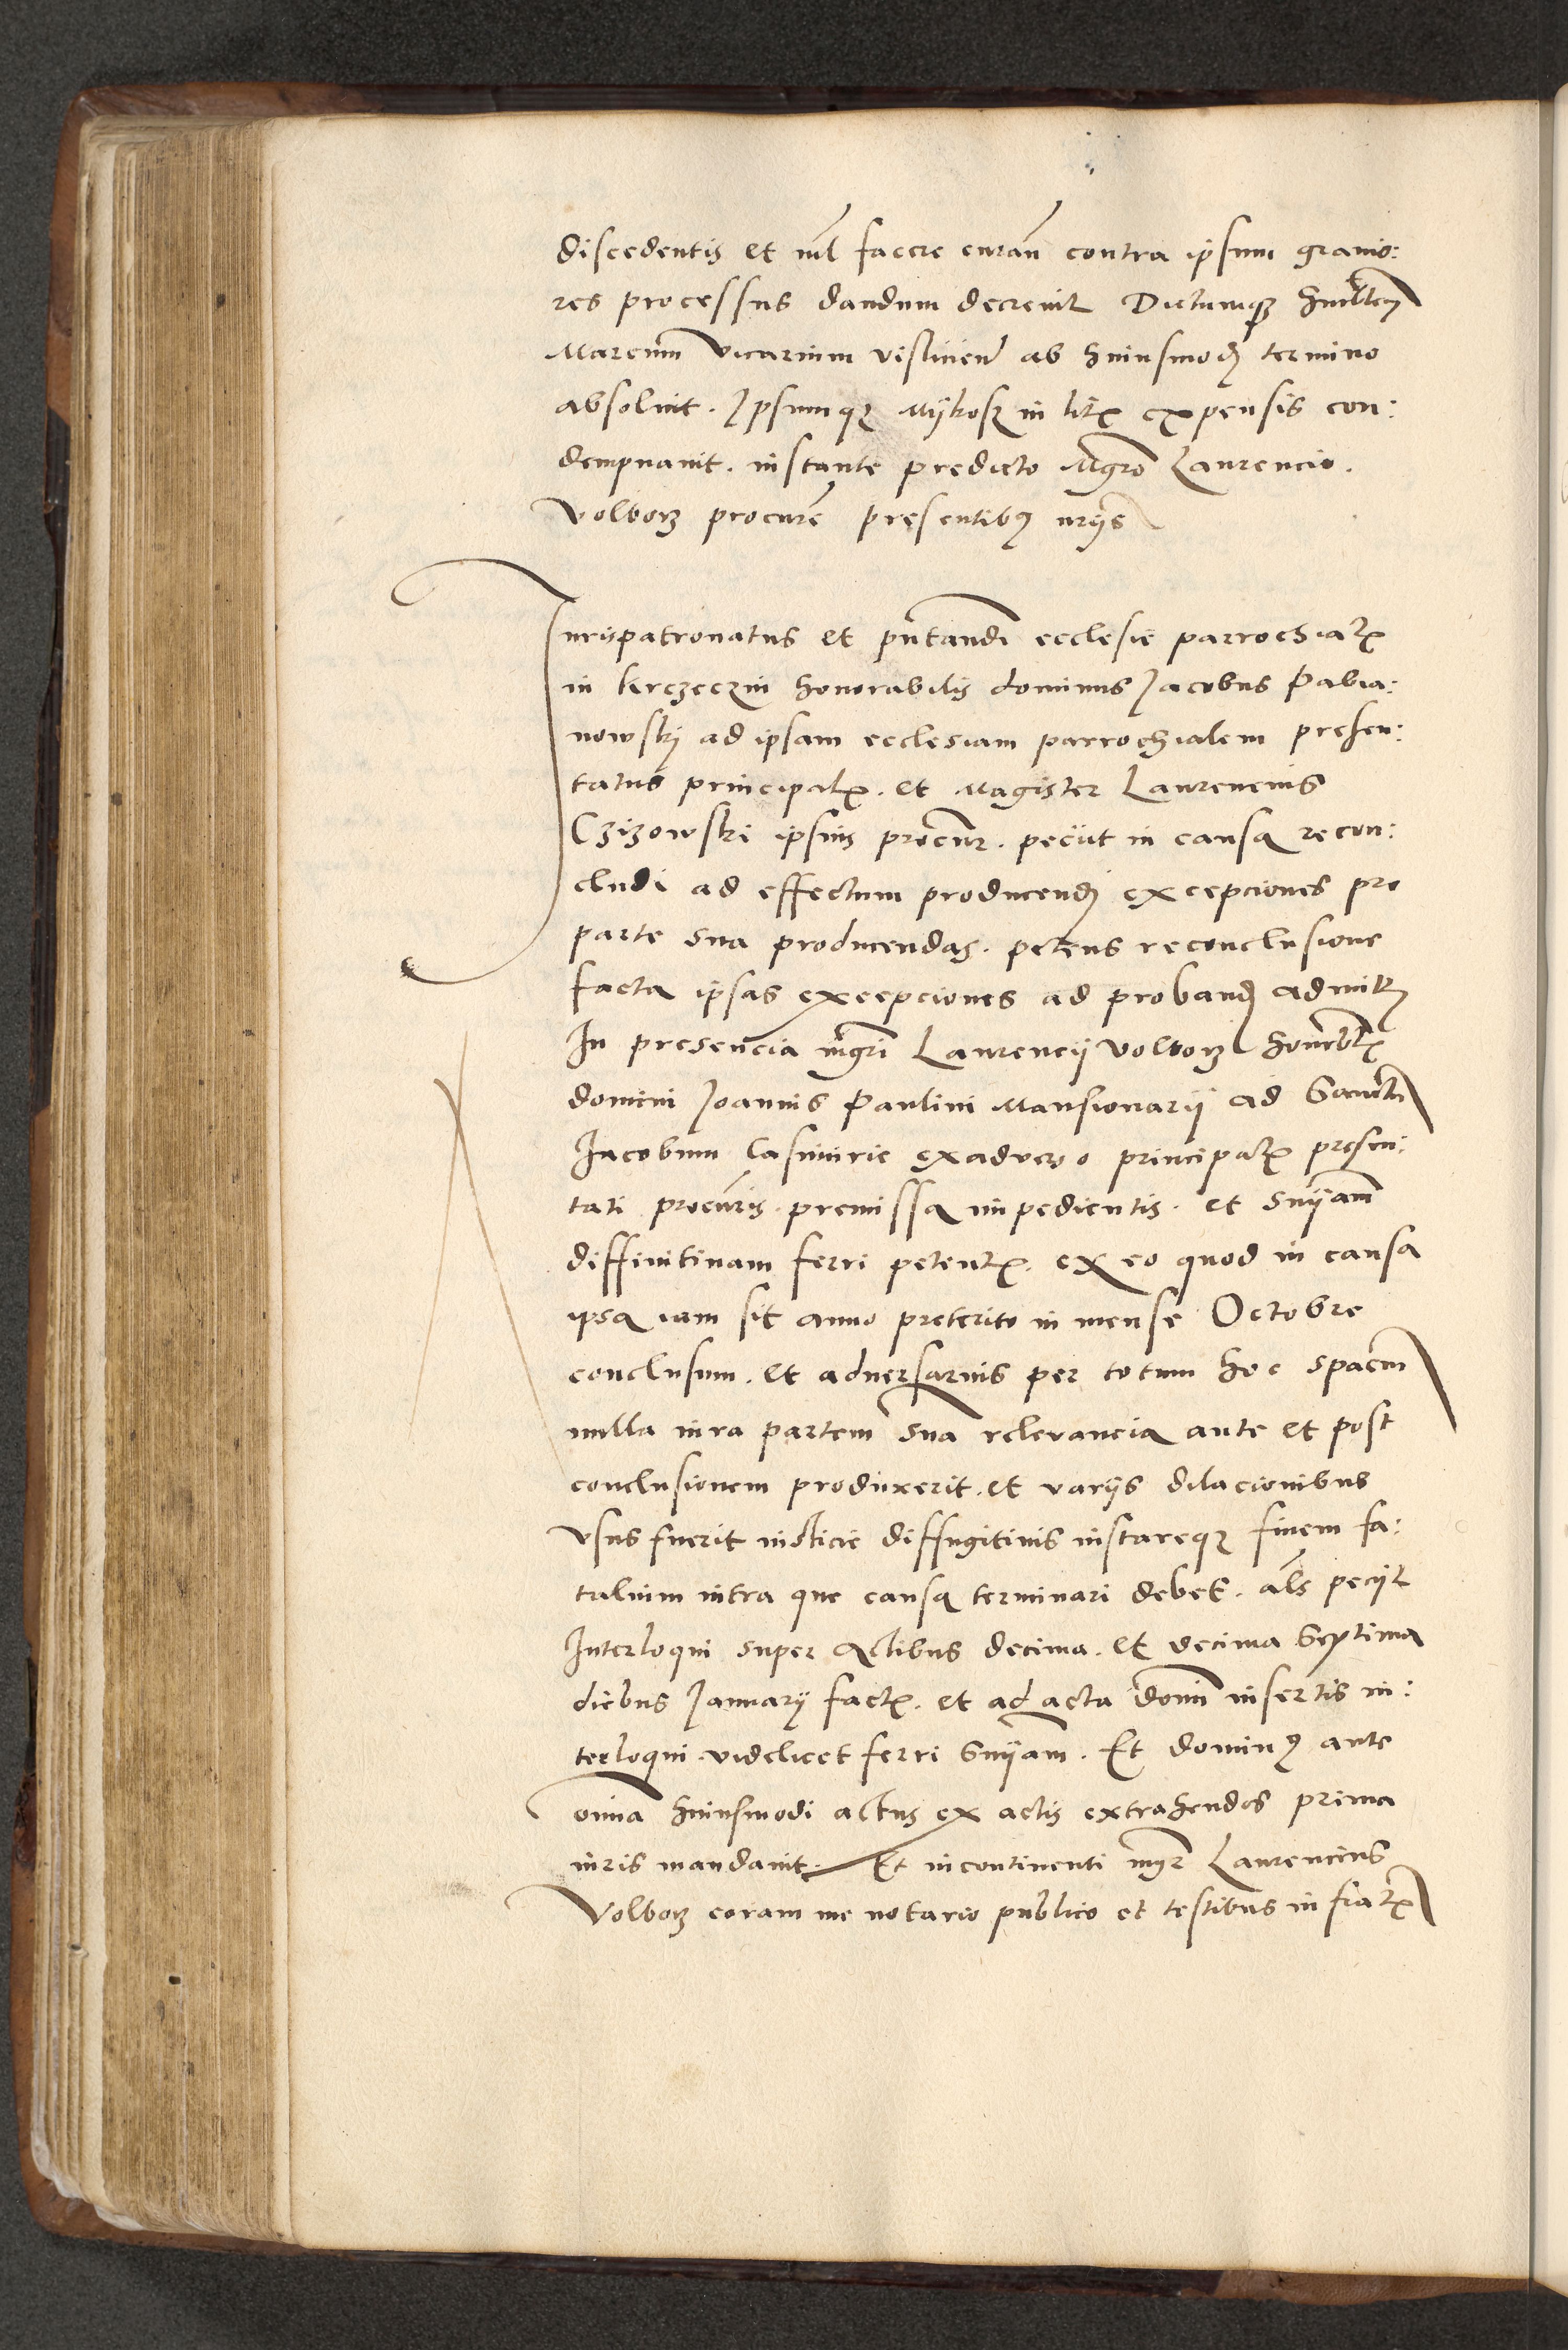 discedentis et nil facere curan contra ipsum gravio:
res processus dandum decrevit Dictumqz honorabilem
Marcum vicarium vislicien ab huiusmodi termino
absolvit. Ipsumqz Mykosz in litis expensis con:
dempnavit. instante predicto Mgro Laurencio.
Volborz procure presentibus uriis
Iurispatronatus et pntandi ecclesie parrochialis
in krczeczin honorabilis dominus Jacobus Pabia:
nowskj ad ipsam ecclesiam parrochialem presen:
tatus principalis. et Magister Laurencius
Czizowski ipsius procur. peciit in causa recon:
cludi ad effectum producendi excepciones pro
parte sua producendas. petens reconclusione
facta ipsas excepciones ad proband admitti
In presencia mgri Laurencij volborz honorabilis
domini Joannis Paulini Mansionarij ad Sanctum
Jacobum Casimirie exadverso principalis presen:
tati procuris. premissa impedientis. et sniam
diffinitivam ferri petentis. ex eo quod in causa
ipsa iam sit anno preterito in mense Octobre
conclusum. et adversarius per totum hoc spacium
nulla iura partem sua relevancia ante et post
conclusionem produxerit. et varijs dilacionibus
vsus fuerit iusticie diffugitivis instareqz finem fa:
talium intra que causa terminari debet. als pecijt
Interloqui super actibus decima. et decima Septima
diebus Januarij factis. et ad acta domi insertis in:
terloqui videlicet ferri Sniam. Et dominus ante
omnia huiusmodi actus ex actis extrahendos prima
iuris mandavit. Et incontinenti mgr Laurencius
Volborz coram me notario publico et testibus infratis